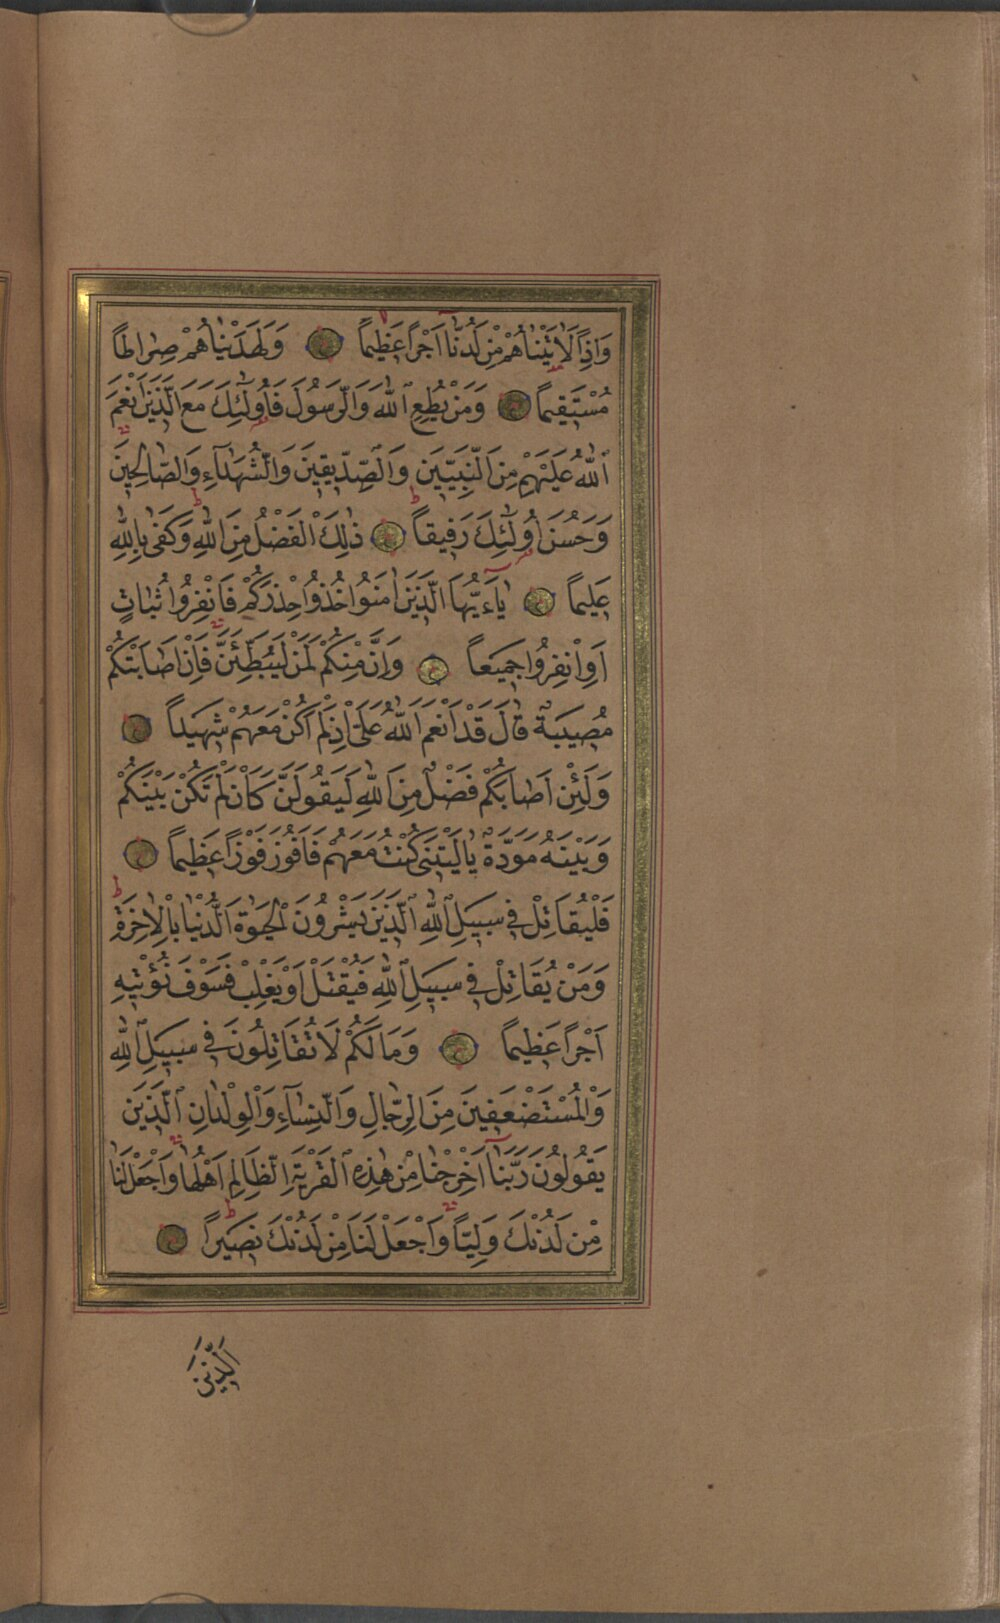 وَاِذًا لَاٰتَيْنَاهُمْ مِنْ لَدُنَّا اَجْرًا عَظِيمًا وَلَهَدَيْنَاهُمْ صِرَاطًا
مُسْتَقِيمًا وَمَنْ يُطِعِ اللّٰهَ وَالرَّسُولَ فَاُولٰئِكَ مَعَ الَّذِينَ اَنْعَمَ
اللّٰهُ عَلَيْهِمْ مِنَ النَّبِيّٖنَ وَالصِّدّٖيقٖينَ وَالشُّهَدَاءِ وَالصَّالِحٖينَ
وَحَسُنَ اُولٰئِكَ رَفٖيقًا ذٰلِكَ الْفَضْلُ مِنَ اللّٰهِ وَكَفٰى بِاللّٰهِ
عَلٖيمًا يَا اَيُّهَا الَّذٖينَ اٰمَنُوا خُذُوا حِذْرَكُمْ فَانْفِرُوا ثُبَاتٍ
اَوِ انْفِرُوا جَمٖيعًا وَاِنَّ مِنْكُمْ لَمَنْ لَيُبَطِّئَنَّ فَاِنْ اَصَابَتْكُمْ
مُصٖيبَةٌ قَالَ قَدْ اَنْعَمَ اللّٰهُ عَلَىَّ اِذْ لَمْ اَكُنْ مَعَهُمْ شَهٖيدًا
وَلَئِنْ اَصَابَكُمْ فَضْلٌ مِنَ اللّٰهِ لَيَقُولَنَّ كَاَنْ لَمْ تَكُنْ بَيْنَكُمْ
وَبَيْنَهُ مَوَدَّةٌ يَا لَيْتَنٖى كُنْتُ مَعَهُمْ فَاَفُوزَ فَوْزًا عَظٖيمًا
فَلْيُقَاتِلْ فٖى سَبٖيلِ اللّٰهِ الَّذٖينَ يَشْرُونَ الْحَيٰوةَ الدُّنْيَا بِالْاٰخِرَةِ
وَمَنْ يُقَاتِلْ فٖى سَبٖيلِ اللّٰهِ فَيُقْتَلْ اَوْ يَغْلِبْ فَسَوْفَ نُؤْتٖيهِ
اَجْرًا عَظٖيمًا وَمَا لَكُمْ لَا تُقَاتِلُونَ فٖى سَبٖيلِ اللّٰهِ
وَالْمُسْتَضْعَفٖينَ مِنَ الرِّجَالِ وَالنِّسَاءِ وَالْوِلْدَانِ الَّذٖينَ
يَقُولُونَ رَبَّنَا اَخْرِجْنَا مِنْ هٰذِهِ الْقَرْيَةِ الظَّالِمِ اَهْلُهَا وَاجْعَلْ لَنَا
مِنْ لَدُنْكَ وَلِيًّا وَاجْعَلْ لَنَا مِنْ لَدُنْكَ نَصٖيرًا
اَلَّذٖينَ